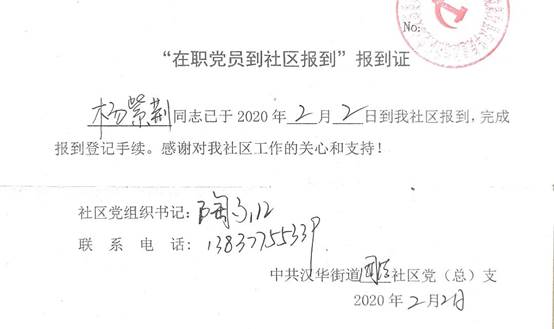 No:
“在职党员到社区报到”报到证
杨紫荆同志已于 2020 年 2 月 2 日到我社区报到，完成
报到登记手续。感谢对我社区工作的关心和支持！
社区党组织书记：陶
联 系 电 话：13837755339
中共汉华街道 社区党（总）支
2020 年 2 月 2 日